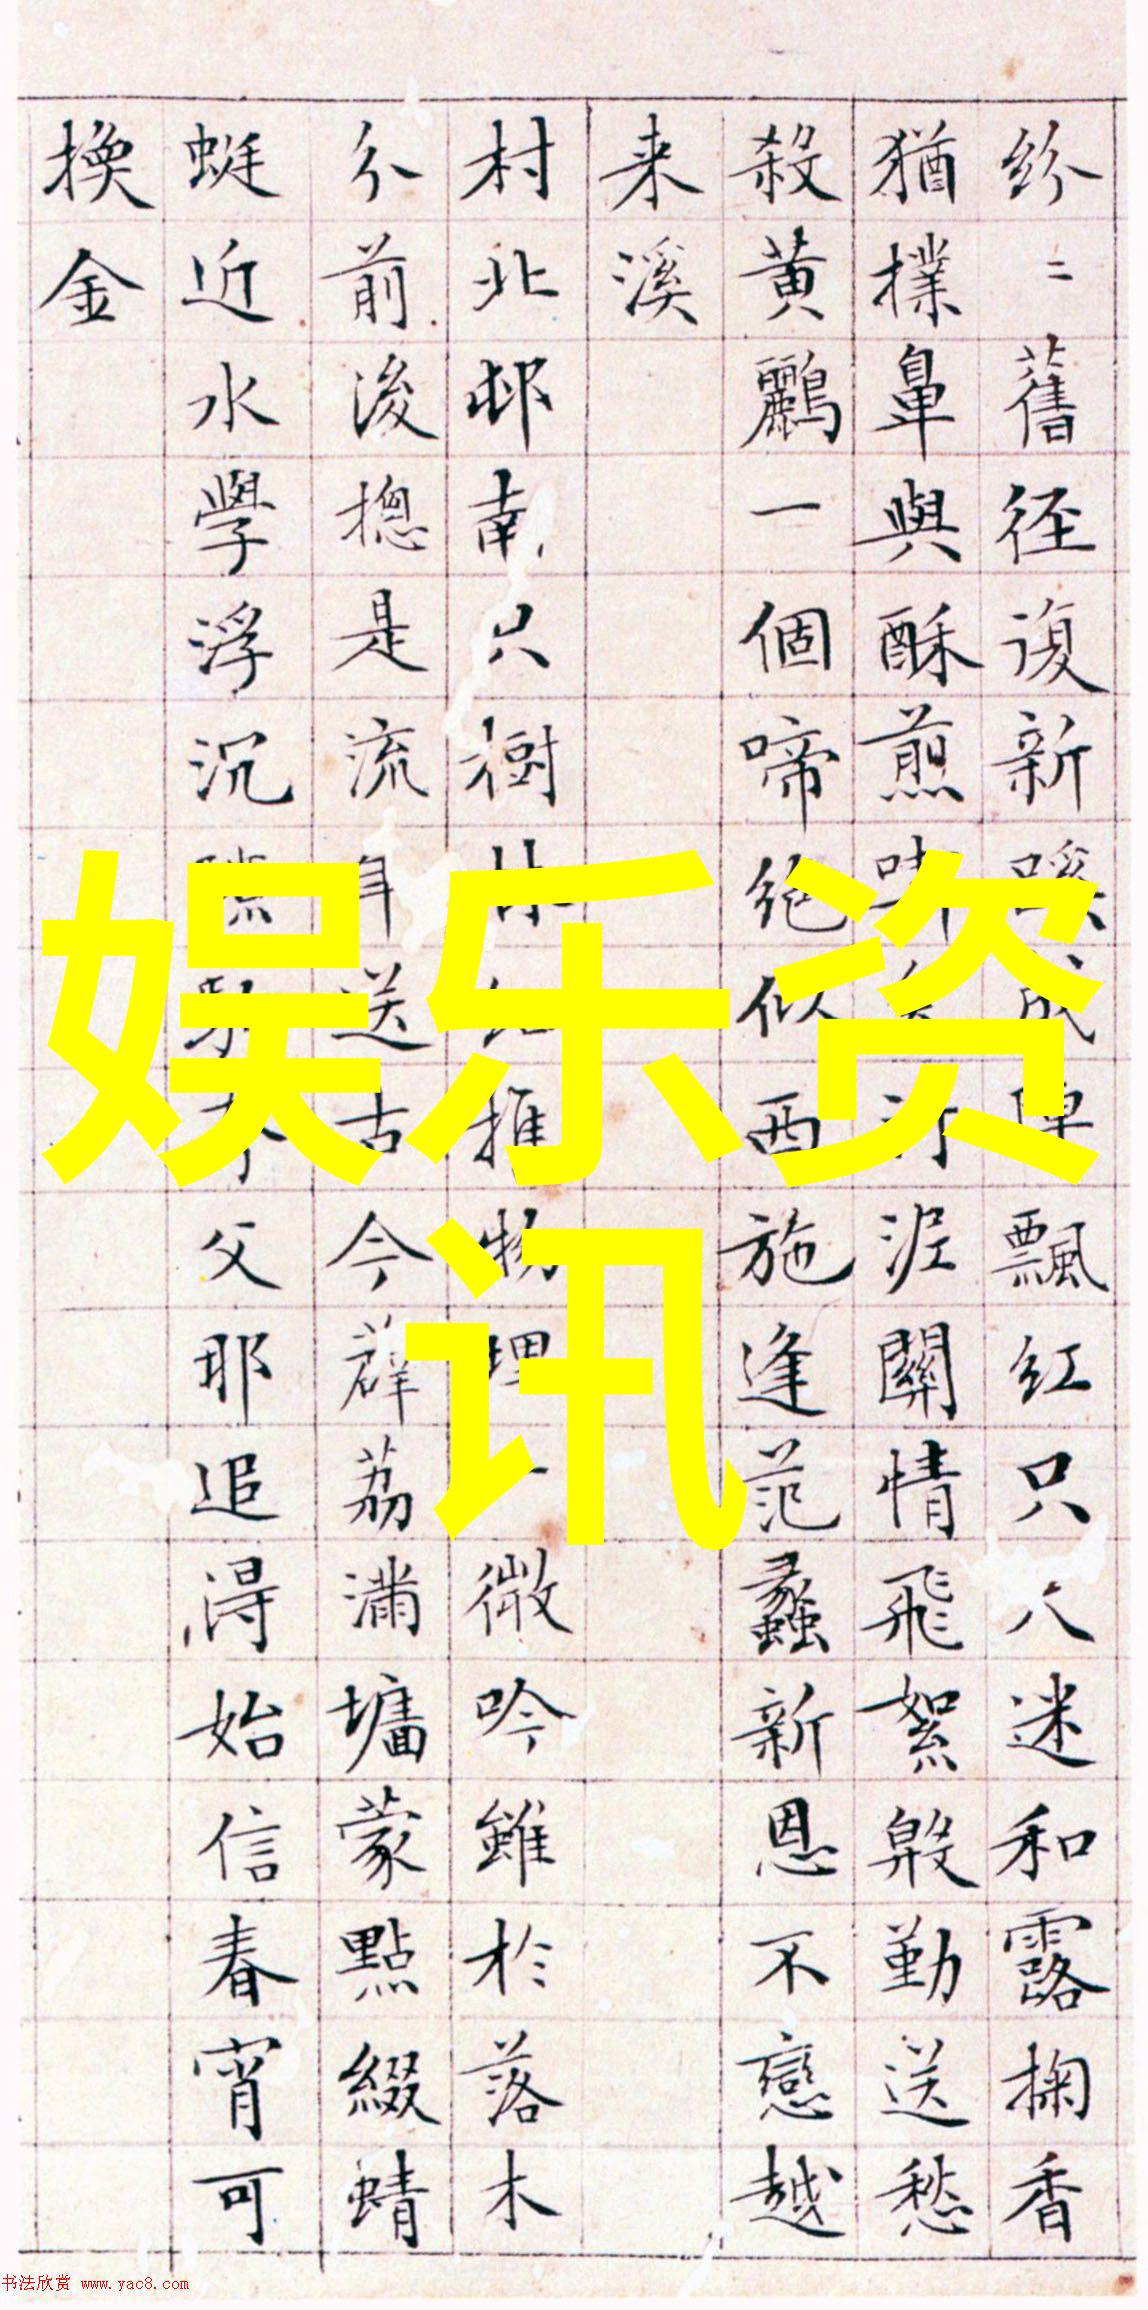 纷〻舊径復新蹊成陣飄紅只人迷和露掬香
猶撲鼻與酥煎味泥關情飛絮慇勤送愁
殺黄鸝一個啼绝似西施逢范蠡新恩不戀越
来溪
村北邨南只樹推物理微吟雖於落木
分前後摠是流年送古今薜荔滿墻蒙點綴蜻
蜓近水學浮沉父耶追得始信春宵可
換金
娱乐资
讯
书法欣赏 www.yac8.com